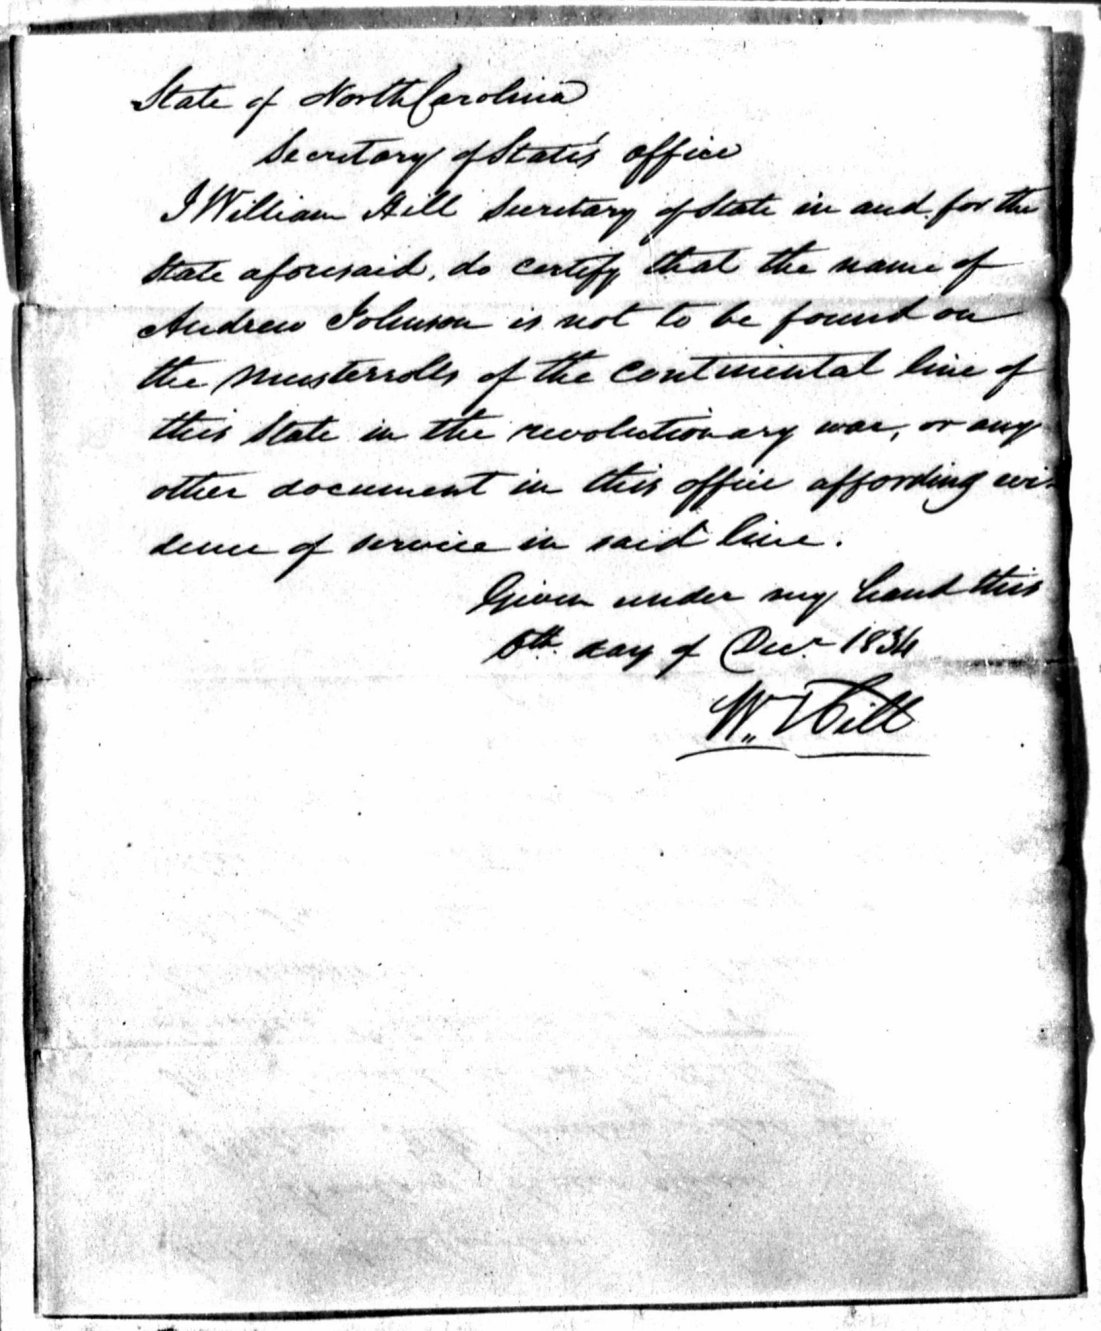 State of North Carolina
Secretary of State's office
I William Hill Secretary of State in and for the
State aforesaid, do certify that the name of
Andrew Johnson is not to be found on
the musterrolls of the continental line of
this State in the revolutionary war, or any
other document in this office affording evi-
dence of service in said line.
Given under my hand this
6th day of Decr 1834
Wm Hill